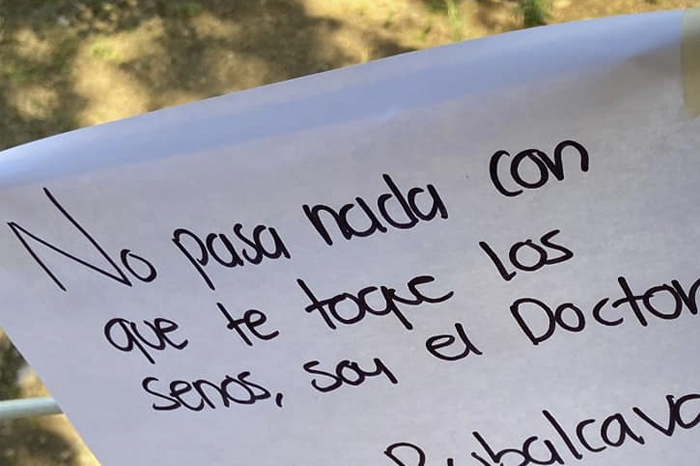 No pasa nada con
que te toque los
senos, soy el Doctor
Rubalcava